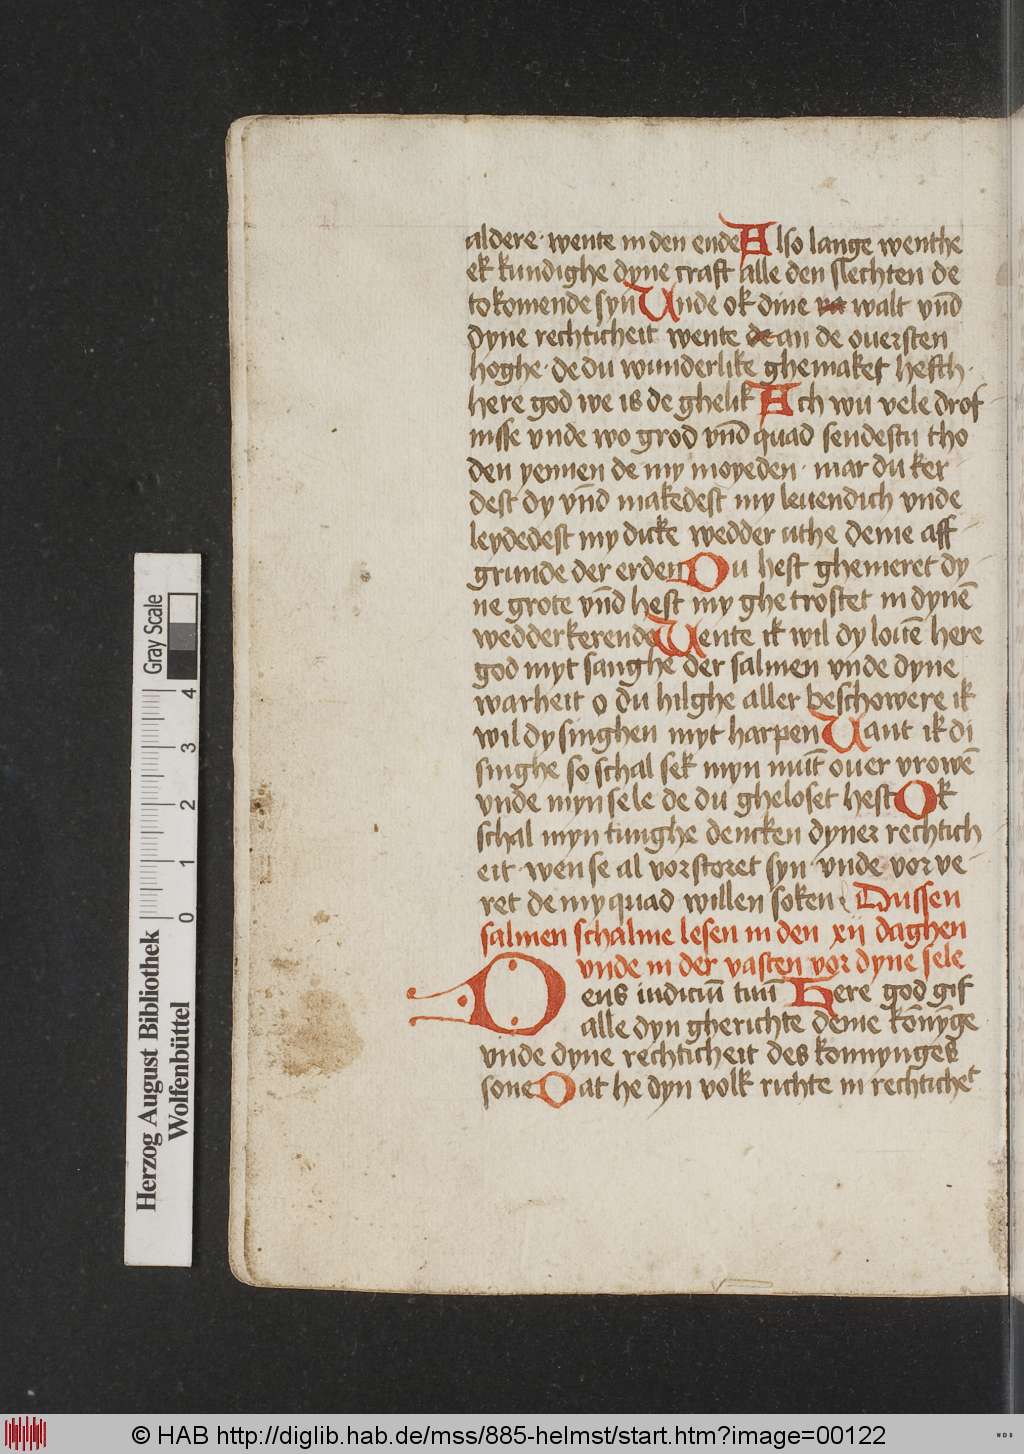 aldere · wente in den ende Also lange wenthe
ek kundighe dyne craft alle den slechten de
tokomende syn Unde ok dine va walt vn̄d
dyne rechticheit wente de an de ouersten
hoghe · de du wunderlike ghemaket hefth ·
here god we is de ghelik Ach wu vele drof
nisse vnde wo grod vn̄d quad sendestu tho
den yennen de my moyeden · mar du ker
dest dy vn̄d makedest my leuendich vnde
leydedest my dicke wedder uthe deme aff
grunde der erden Du hest ghemeret dy
ne grote vn̄d hest my ghetrostet in dynē
wedderkerende Wente ik wil dy louē here
god myt sanghe der salmen vnde dyne
warheit o du hilghe aller beschowere ik
wil dy singhen myt harpen Want ik di
singhe so schal sek myn mūt ouer vrowē
vnde myn sele de du gheloset hest Ok
schal myn tunghe dencken dyner rechtich
eit · wen se al vorstoret syn · vnde vorve-
ret de my quad willen soken Dussen
salmen schalme lesen in den xii daghen
vnde in der vasten vor dyne sele
Deus iudiciū tuū Here god gif
alle dyn gherichte deme kōnȳge
vnde dyne rechticheit des konnynges
sone Dat he dyn volk richte in rechtichet
Gray Scale
4
3
2
1
0
Herzog August Bibliothek
Wolfenbüttel
© HAB http://diglib.hab.de/mss/885-helmst/start.htm?image=00122
WDB